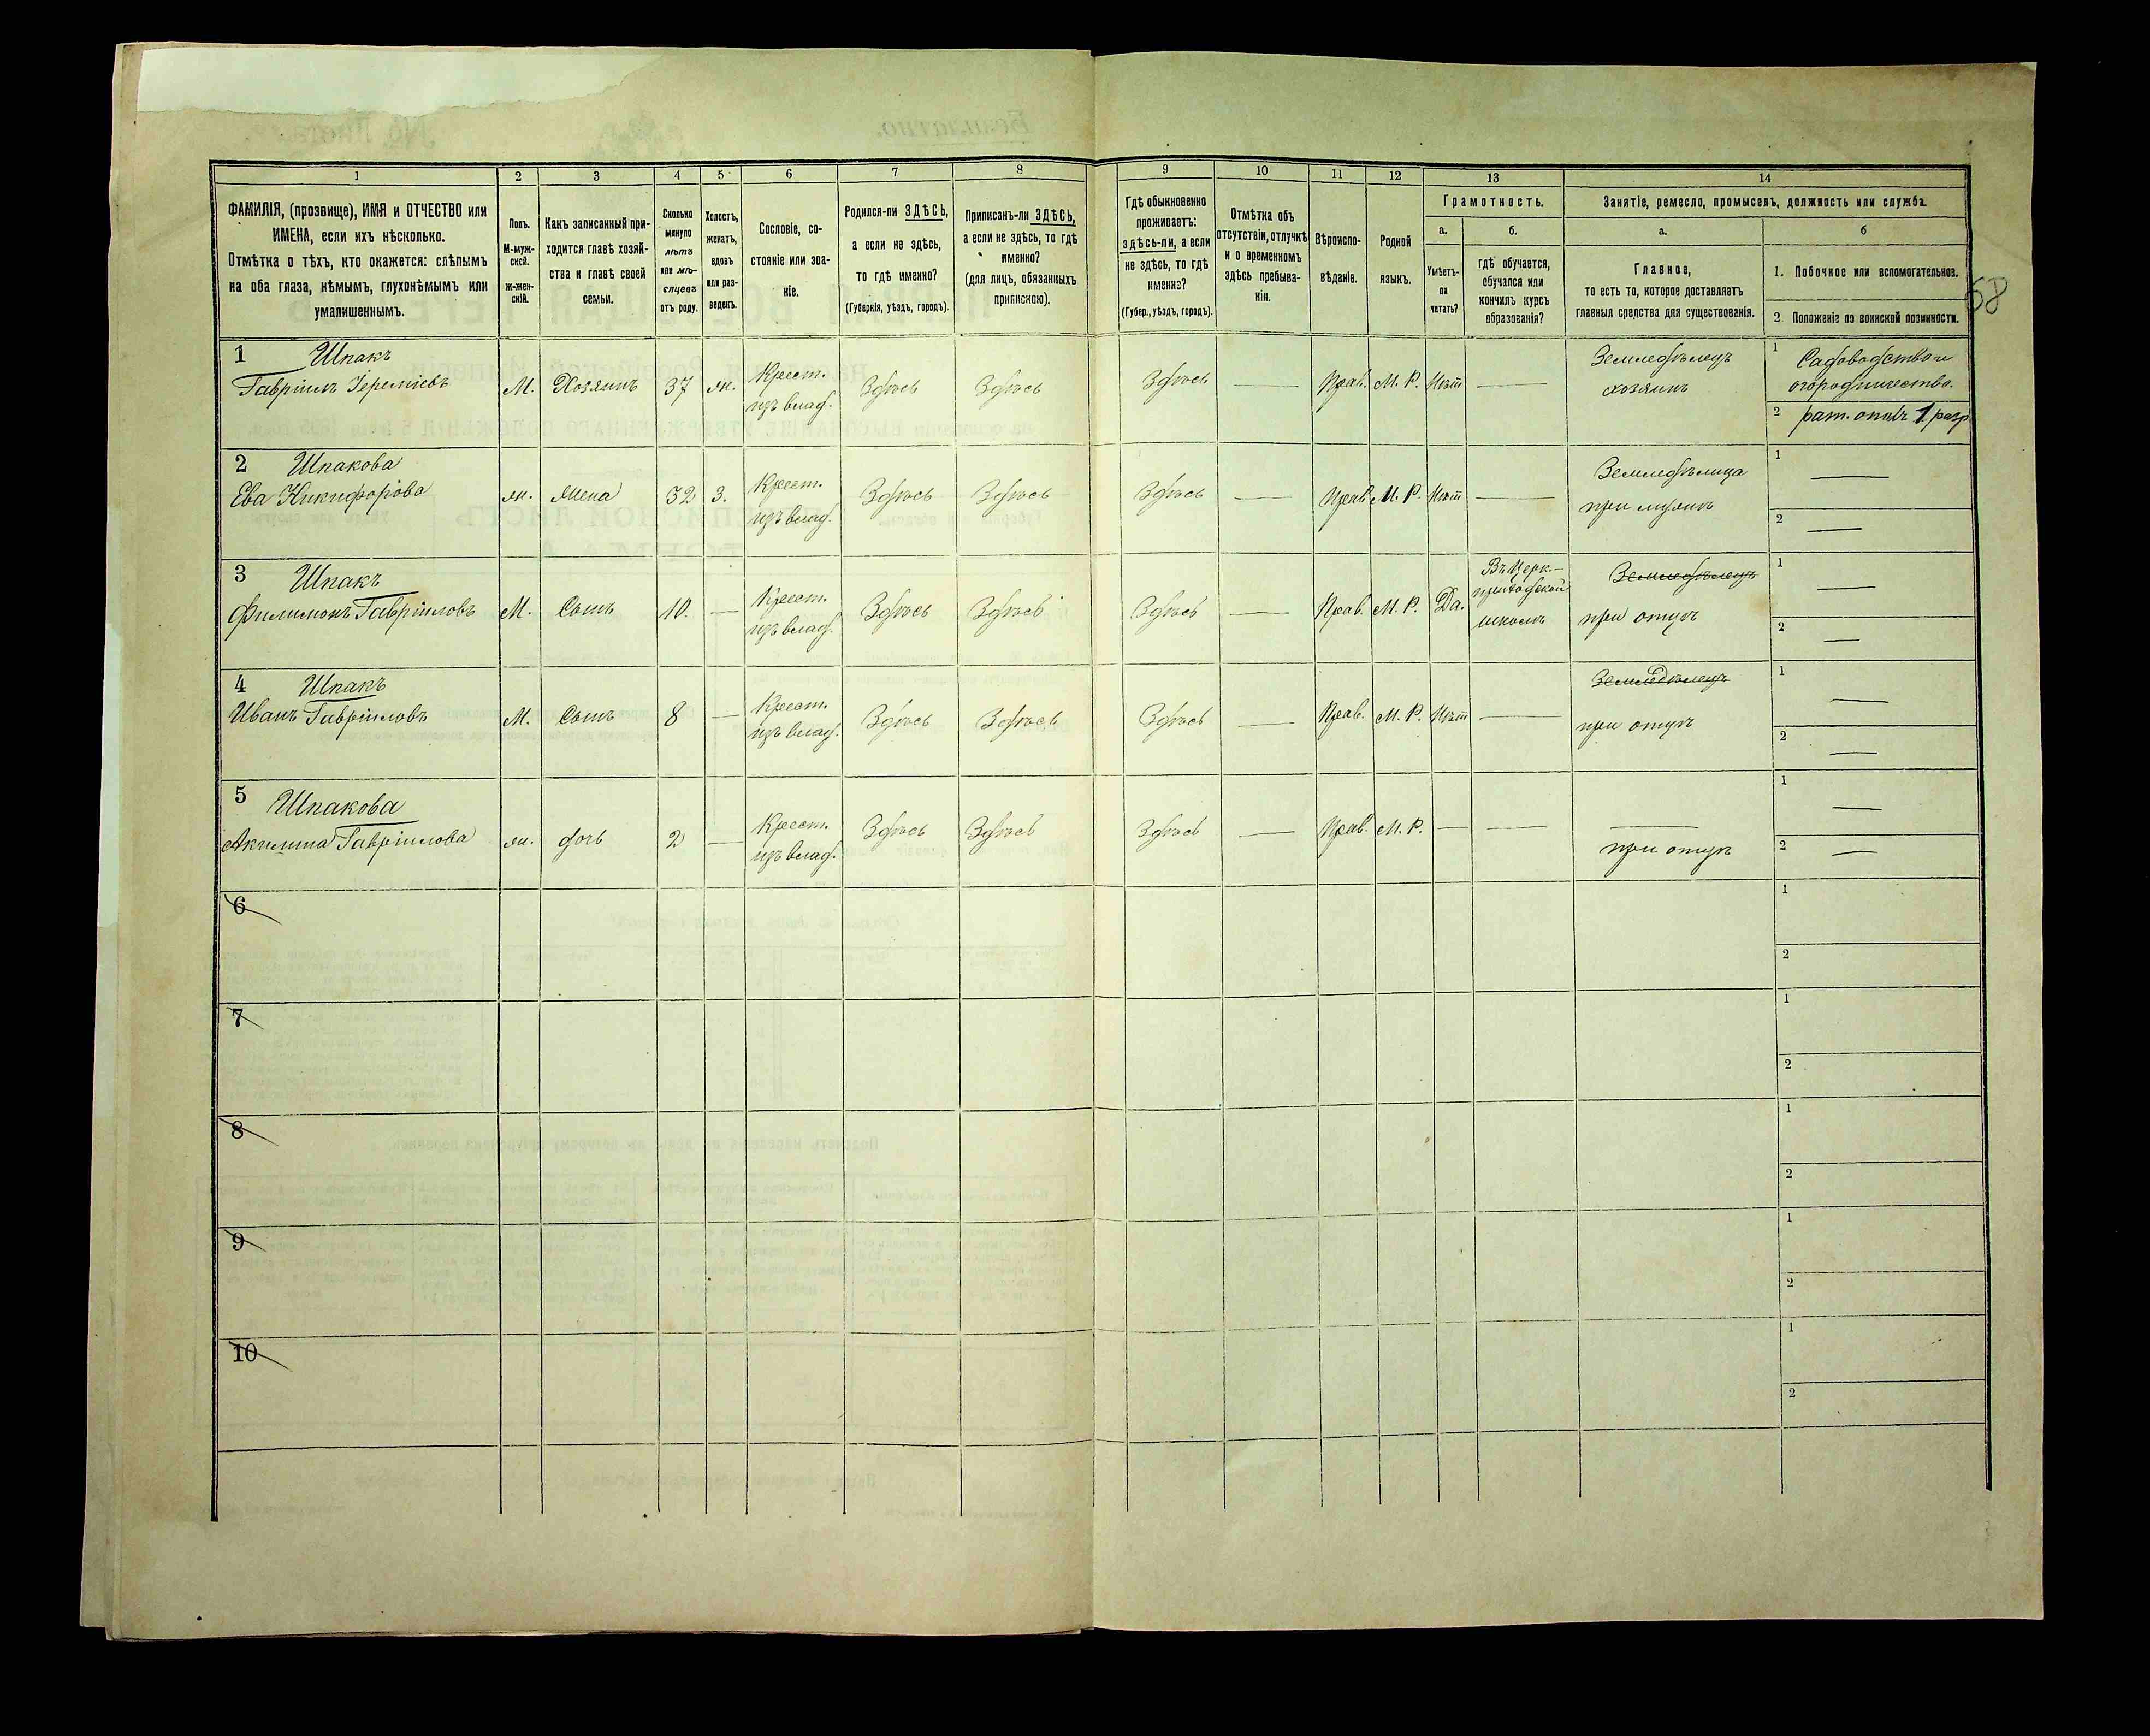 1 2 3 4 5 6 7 8 9 10 11 12 13 14
ФАМИЛІЯ, (прозвище), ИМЯ и ОТЧЕСТВО или
ИМЕНА, если ихъ нѣсколько.
Отмѣтка о тѣхъ, кто окажется: слѣпымъ
на оба глаза, нѣмымъ, глухонѣмымъ или
умалишеннымъ.
Полъ.
М-муж-
ской.
ж-жен-
скій.
Какъ записанный при-
ходится главѣ хозяй-
ства и главѣ своей
семьи.
Сколько
минуло
лѣтъ
или мѣ-
сяцевъ
отъ роду.
Холостъ,
женатъ,
вдовъ
или раз-
веденъ.
Сословіе, со-
стояніе или зва-
ніе.
Родился-ли ЗДѢСЬ,
а если не здѣсь,
то гдѣ именно?
(Губернія, уѣздъ, городъ).
Приписанъ-ли ЗДѢСЬ,
а если не здѣсь, то гдѣ
именно?
(для лицъ, обязанныхъ
припискою).
Гдѣ обыкновенно
проживаетъ:
здѣсь-ли, а если
не здѣсь, то гдѣ
именно?
(Губер., уѣздъ, городъ).
Отмѣтка объ
отсутствіи, отлучкѣ
и о временномъ
здѣсь пребыва-
ніи.
Вѣроиспо-
вѣданіе.
Родной
языкъ.
Грамотность.
а.
Умѣетъ-
ли
читать?
б.
гдѣ обучается,
обучался или
кончилъ курсъ
образованія?
Занятіе, ремесло, промыселъ, должность или служба.
а.
Главное,
то есть то, которое доставляетъ
главныя средства для существованія.
б
1. Побочное или вспомогательное.
2. Положеніе по воинской повинности.
58
1 Шпакъ
Гавріилъ Іереміевъ М. Хозяинъ 37 ж. Крест.
изъ влад. Здѣсь Здѣсь Здѣсь — Прав. М. Р. Нѣт — Земледѣлецъ
хозяинъ
1 Садоводство и
огородничество.
2 рат. опол. 1 разр
2 Шпакова
Ева Никифорова ж. Жена 32 З. Крест.
изъ влад. Здѣсь Здѣсь Здѣсь — Прав. М. Р. Нѣт — Земледѣлица
при мужѣ
1 —
2 —
3 Шпакъ
Филимонъ Гавріиловъ М. Сынъ 10. — Крест.
изъ влад. Здѣсь Здѣсь Здѣсь — Прав. М. Р. Да. Въ Церк.-
приходской
школѣ
Земледѣлецъ
при отцѣ
1 —
2 —
4 Шпакъ
Иванъ Гавріиловъ М. Сынъ 8 — Крест.
изъ влад. Здѣсь Здѣсь Здѣсь — Прав. М. Р. Нѣт —
Земледѣлецъ
при отцѣ
1 —
2 —
5 Шпакова
Акилина Гавріилова ж. дочь 2 — Крест.
изъ влад. Здѣсь Здѣсь Здѣсь — Прав. М. Р. — — —
при отцѣ
1 —
2 —
6
1
2
7
1
2
8
1
2
9
1
2
10
1
2